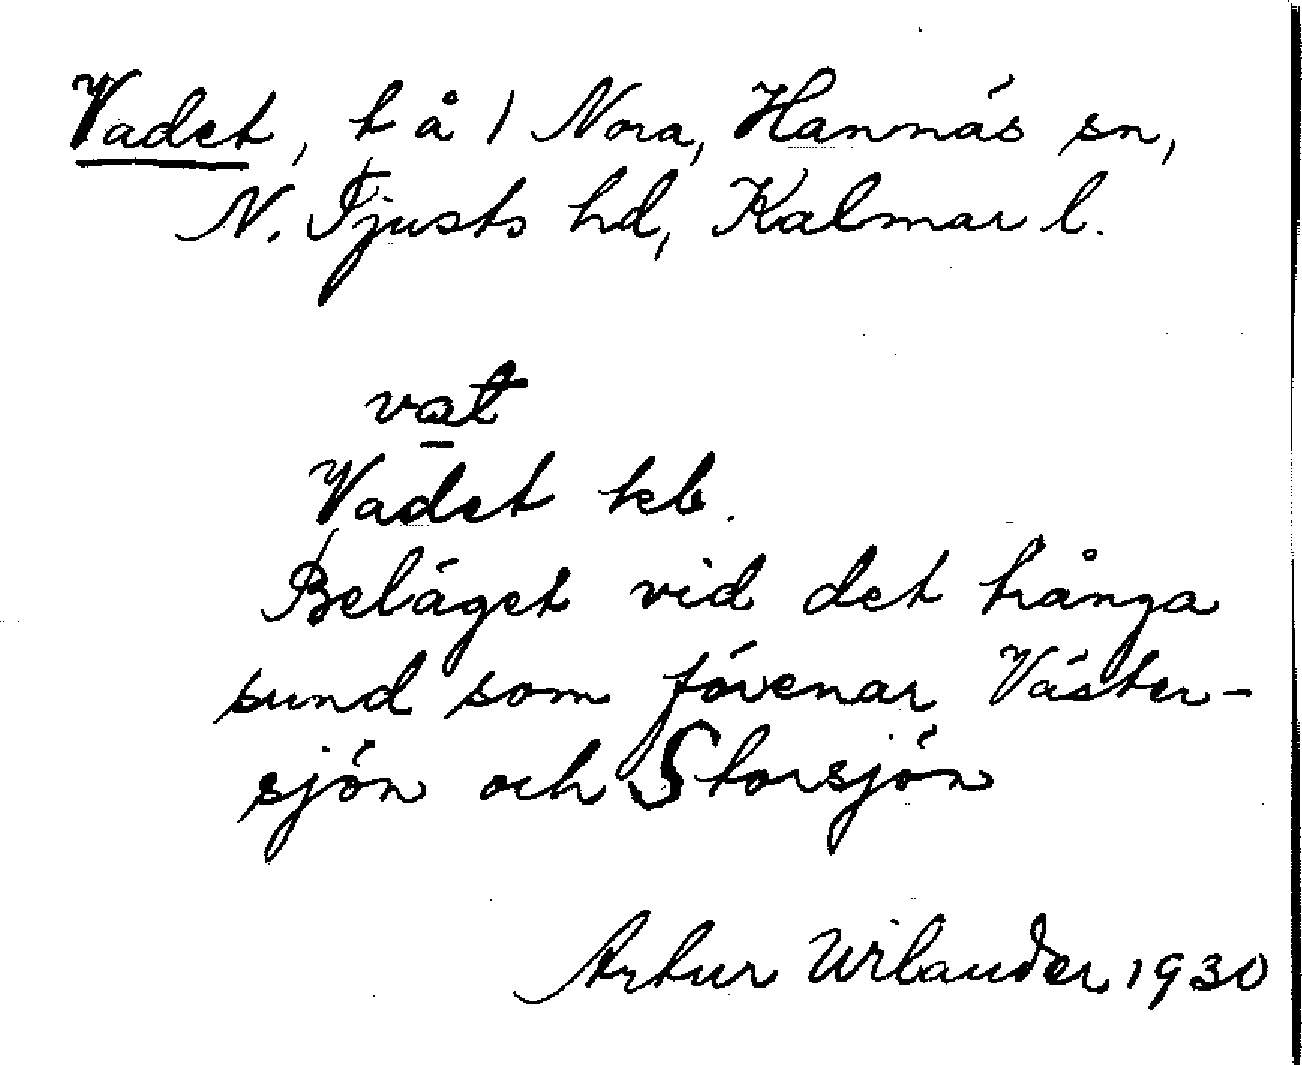 Vadet, t å 1 Nora, Hannäs sn,
N. Tjusts hd, Kalmar l.
vat
Vadet kb.
Beläget vid det trånga
sund som förenar Väster-
sjön och Storsjön
Artur Wilander 1930